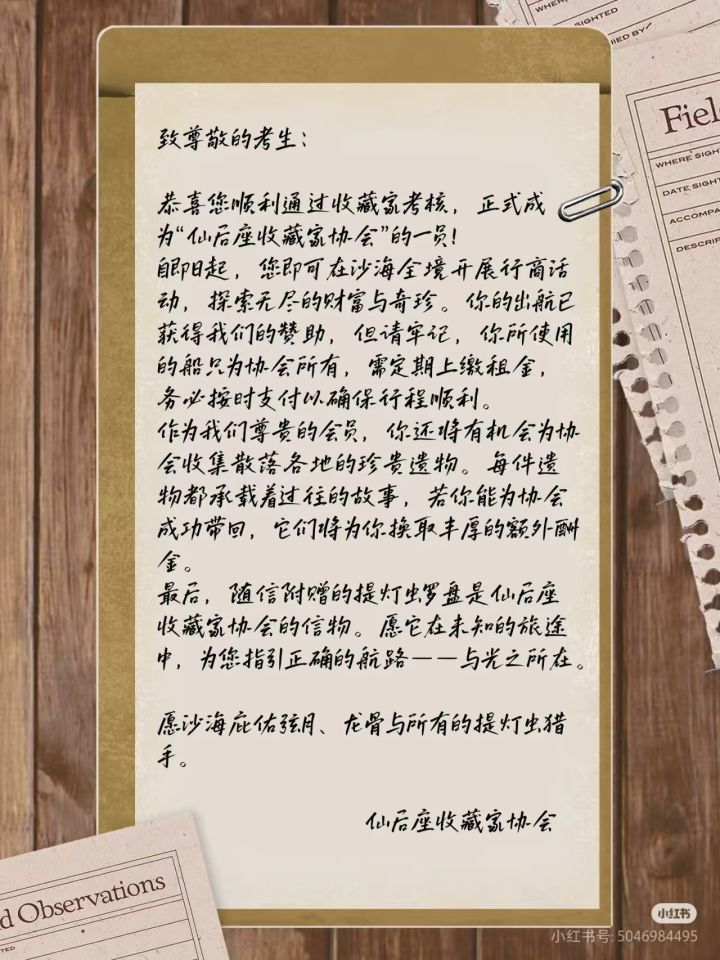 WHERE
SIGHTED
NIED BY
Fiel
WHERE SIGH
DATE SIGHT
ACCOMPA
DESCRI
致尊敬的考生：
恭喜您顺利通过收藏家考核，正式成
为“仙后座收藏家协会”的一员！
自即日起，您即可在沙海全境开展行商活
动，探索无尽的财富与奇珍。你的出航已
获得我们的赞助，但请牢记，你所使用
的船只为协会所有，需定期上缴租金，
务必按时支付以确保行程顺利。
作为我们尊贵的会员，你还将有机会为协
会收集散落各地的珍贵遗物。每件遗
物都承载着过往的故事，若你能为协会
成功带回，它们将为你换取丰厚的额外酬
金。
最后，随信附赠的提灯虫罗盘是仙后座
收藏家协会的信物。愿它在未知的旅途
中，为您指引正确的航路——与光之所在。
愿沙海庇佑弦月、龙骨与所有的提灯虫猎
手。
仙后座收藏家协会
d Observations
TED
小红书
小红书号: 5046984495